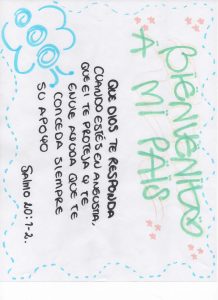 BIENVENIDO
A MI PAIS
QUE DIOS TE RESPONDA
CUANDO ESTÉS EN ANGUSTIA,
QUE EL TE PROTEJA Y TE
ENVIE AYUDA QUE TE
CONCEDA SIEMPRE
SU APOYO
Salmo 20:1-2.